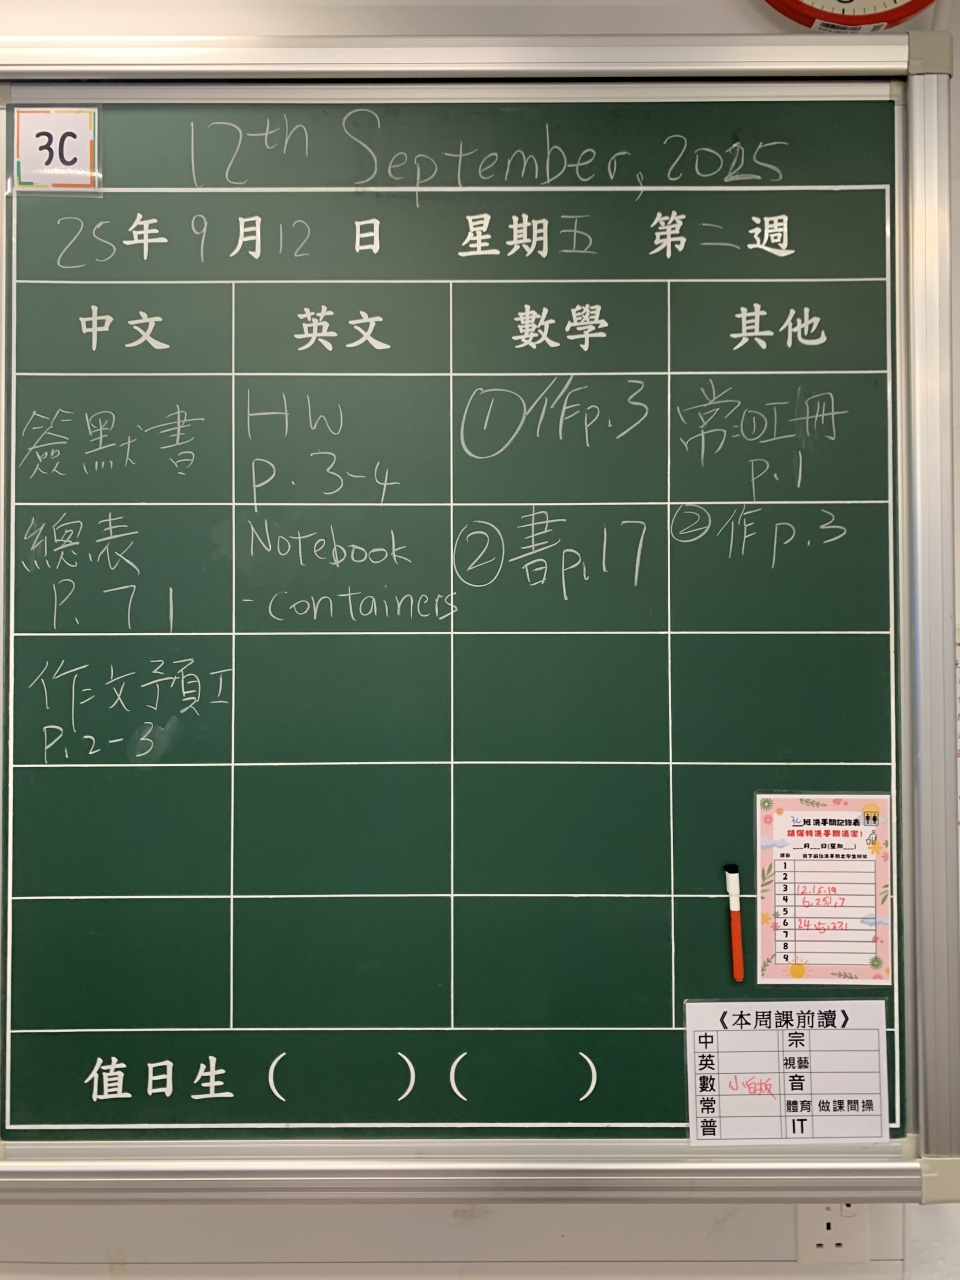 3C
12th September, 2025
25年9月12日 星期五 第二週
中文 英文 數學 其他
簽默書
HW
p. 3-4
①作p.3
常:①工冊
p.1
總表
P. 71
Notebook
- containers
②書p.17
②作p.3
作文預工
P. 2-3
值日生 ( ) ( )
3C班洗手間記錄表
請保持洗手間清潔!
___月___日(星期___)
1
2
3 12,15,19
4
5
6
7
8
9
《本周課前讀》
中 宗
英 視藝
數 小白板 音
常 體育 做課間操
普 IT